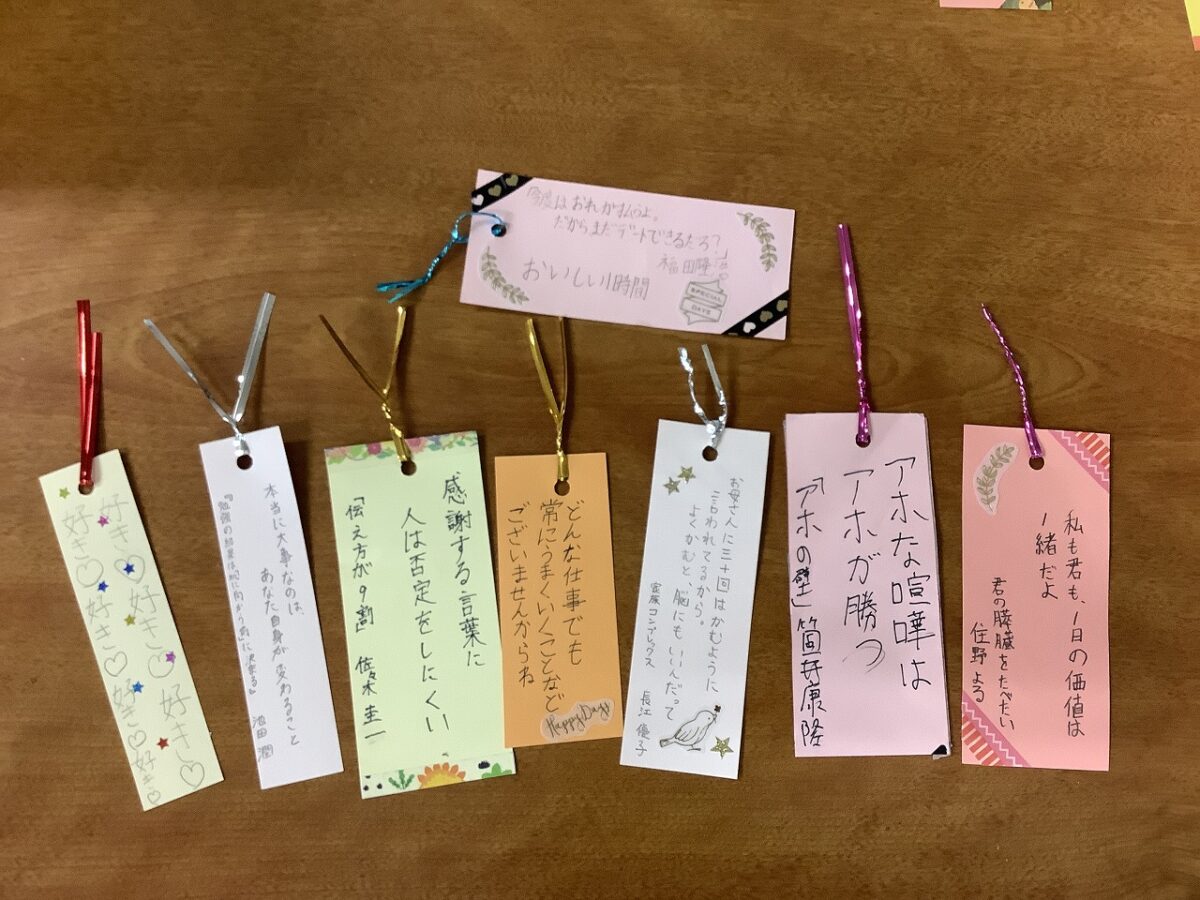 「今度はおれが払うよ。
だからまだデートできるだろ？」
福田隆浩
おいしい1時間
SPECIAL
DAYS
好き♡好き♡好き♡
好き♡好き♡好き♡好き♡
本当に大事なのは、
あなた自身が変わること
『勉強の結果は「机に向かう前」に決まる』
池田 潤
感謝する言葉に
人は否定をしにくい
「伝え方が9割」 佐々木 圭一
どんな仕事でも
常にうまくいくことなど
ございませんからね
Happy Days
お母さんに三十回はかむように
言われてるから。
よくかむと、脳にもいいんだって
家族コンプレックス 長江 優子
アホな喧嘩は
アホが勝つ
「アホの壁」筒井康隆
私も君も、1日の価値は
一緒だよ
君の膵臓をたべたい
住野よる